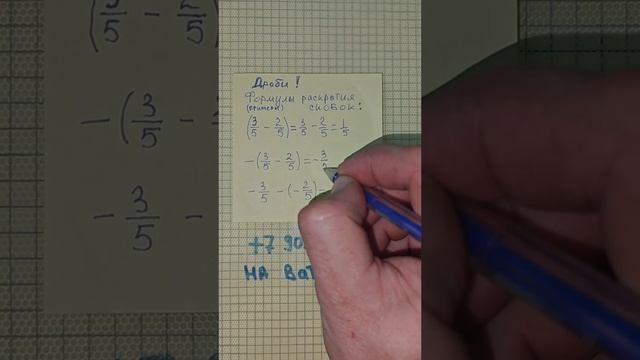 Дроби!
Формулы раскрытия
скобок:
(3/5 - 2/5) = 3/5 - 2/5 = 1/5
-(3/5 - 2/5) = -3/5
-3/5 - (-2/5) =
+7 90
НА Ват